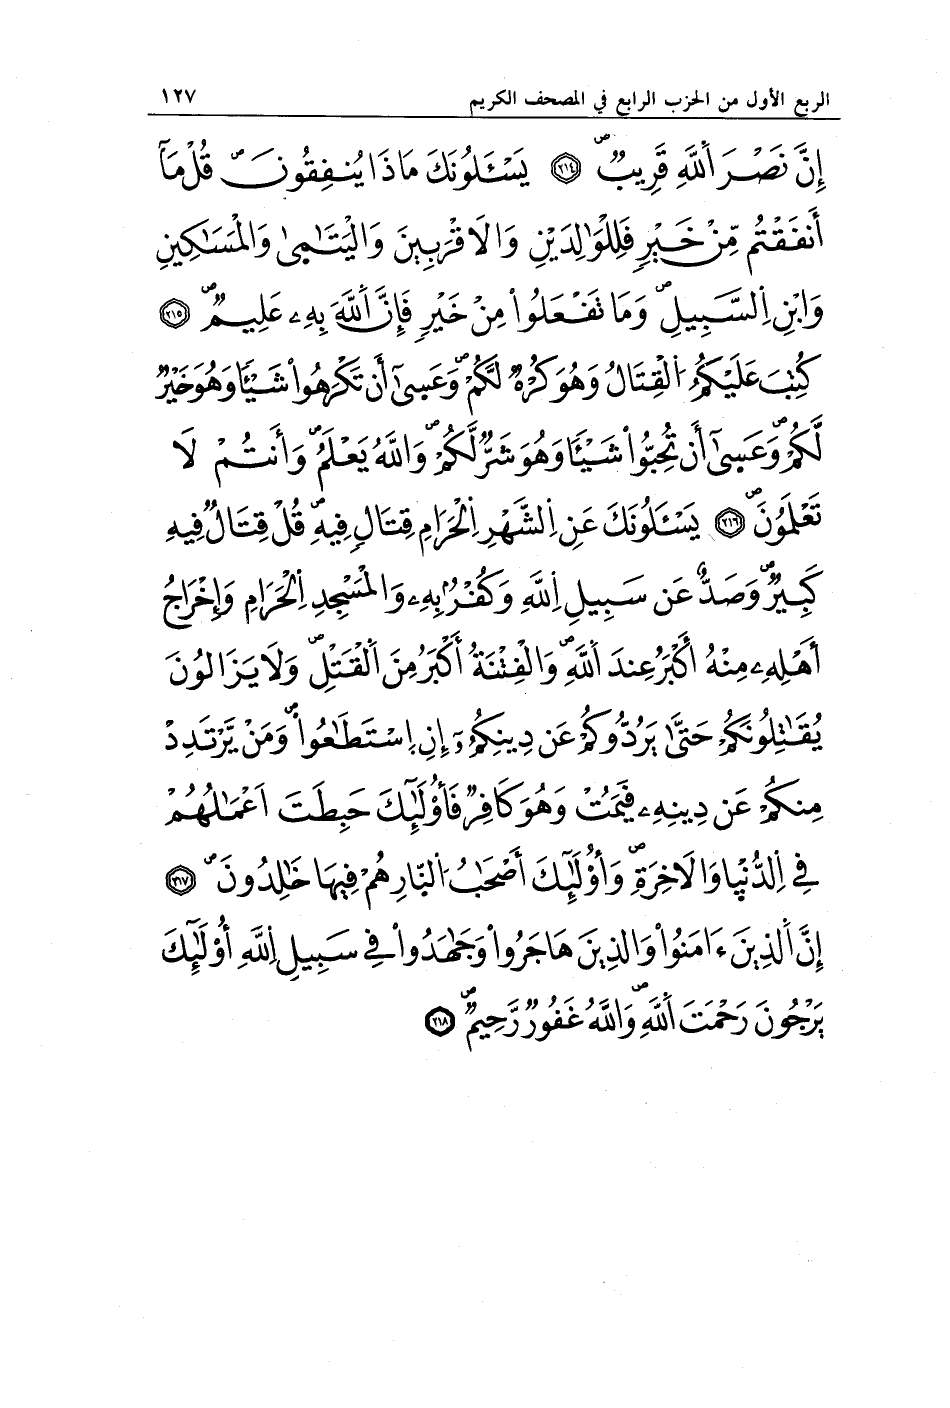 الربع الأول من الحزب الرابع في المصحف الكريم ١٢٧
إِنَّ نَصْرَ اَ۬للَّهِ قَرِيبٞۖ ۝٢١٤ يَسْـَٔلُونَكَ مَاذَا يُنفِقُونَۖ قُلْ مَآ
أَنفَقْتُم مِّنْ خَيْرٖ فَلِلْوَٰلِدَيْنِ وَالَاقْرَبِينَ وَالْيَتَٰمَىٰ وَالْمَسَٰكِينِ
وَابْنِ اِ۬لسَّبِيلِۖ وَمَا تَفْعَلُواْ مِنْ خَيْرٖ فَإِنَّ اَ۬للَّهَ بِهِۦ عَلِيمٞۖ ۝٢١٥
كُتِبَ عَلَيْكُمُ اُ۬لْقِتَالُ وَهُوَ كُرْهٞ لَّكُمْۖ وَعَسَىٰٓ أَن تَكْرَهُواْ شَيْـٔاٗ وَهُوَ خَيْرٞ
لَّكُمْۖ وَعَسَىٰٓ أَن تُحِبُّواْ شَيْـٔاٗ وَهُوَ شَرّٞ لَّكُمْۖ وَاللَّهُ يَعْلَمُۖ وَأَنتُمْ لَا
تَعْلَمُونَۖ ۝٢١٦ يَسْـَٔلُونَكَ عَنِ اِ۬لشَّهْرِ اِ۬لْحَرَامِ قِتَالٖ فِيهِۖ قُلْ قِتَالٞ فِيهِ
كَبِيرٞۖ وَصَدٌّ عَن سَبِيلِ اِ۬للَّهِ وَكُفْرُۢ بِهِۦ وَالْمَسْجِدِ اِ۬لْحَرَامِ وَإِخْرَاجُ
أَهْلِهِۦ مِنْهُ أَكْبَرُ عِندَ اَ۬للَّهِۖ وَالْفِتْنَةُ أَكْبَرُ مِنَ اَ۬لْقَتْلِۖ وَلَا يَزَالُونَ
يُقَٰتِلُونَكُمْ حَتَّىٰ يَرُدُّوكُمْ عَن دِينِكُمُۥٓ إِنِ اِ۪سْتَطَٰعُواْۖ وَمَنْ يَّرْتَدِدْ
مِنكُمْ عَن دِينِهِۦ فَيَمُتْ وَهُوَ كَافِرٞ فَأُوْلَٰٓئِكَ حَبِطَتَ اَعْمَٰلُهُمْ
فِي اِ۬لدُّنْيَا وَالَاخِرَةِۖ وَأُوْلَٰٓئِكَ أَصْحَٰبُ اُ۬لنَّارِ هُمْ فِيهَا خَٰلِدُونَۖ ۝٢١٧
إِنَّ اَ۬لذِينَ ءَامَنُواْ وَالذِينَ هَاجَرُواْ وَجَٰهَدُواْ فِي سَبِيلِ اِ۬للَّهِ أُوْلَٰٓئِكَ
يَرْجُونَ رَحْمَتَ اَ۬للَّهِۖ وَاللَّهُ غَفُورٞ رَّحِيمٞۖ ۝٢١٨